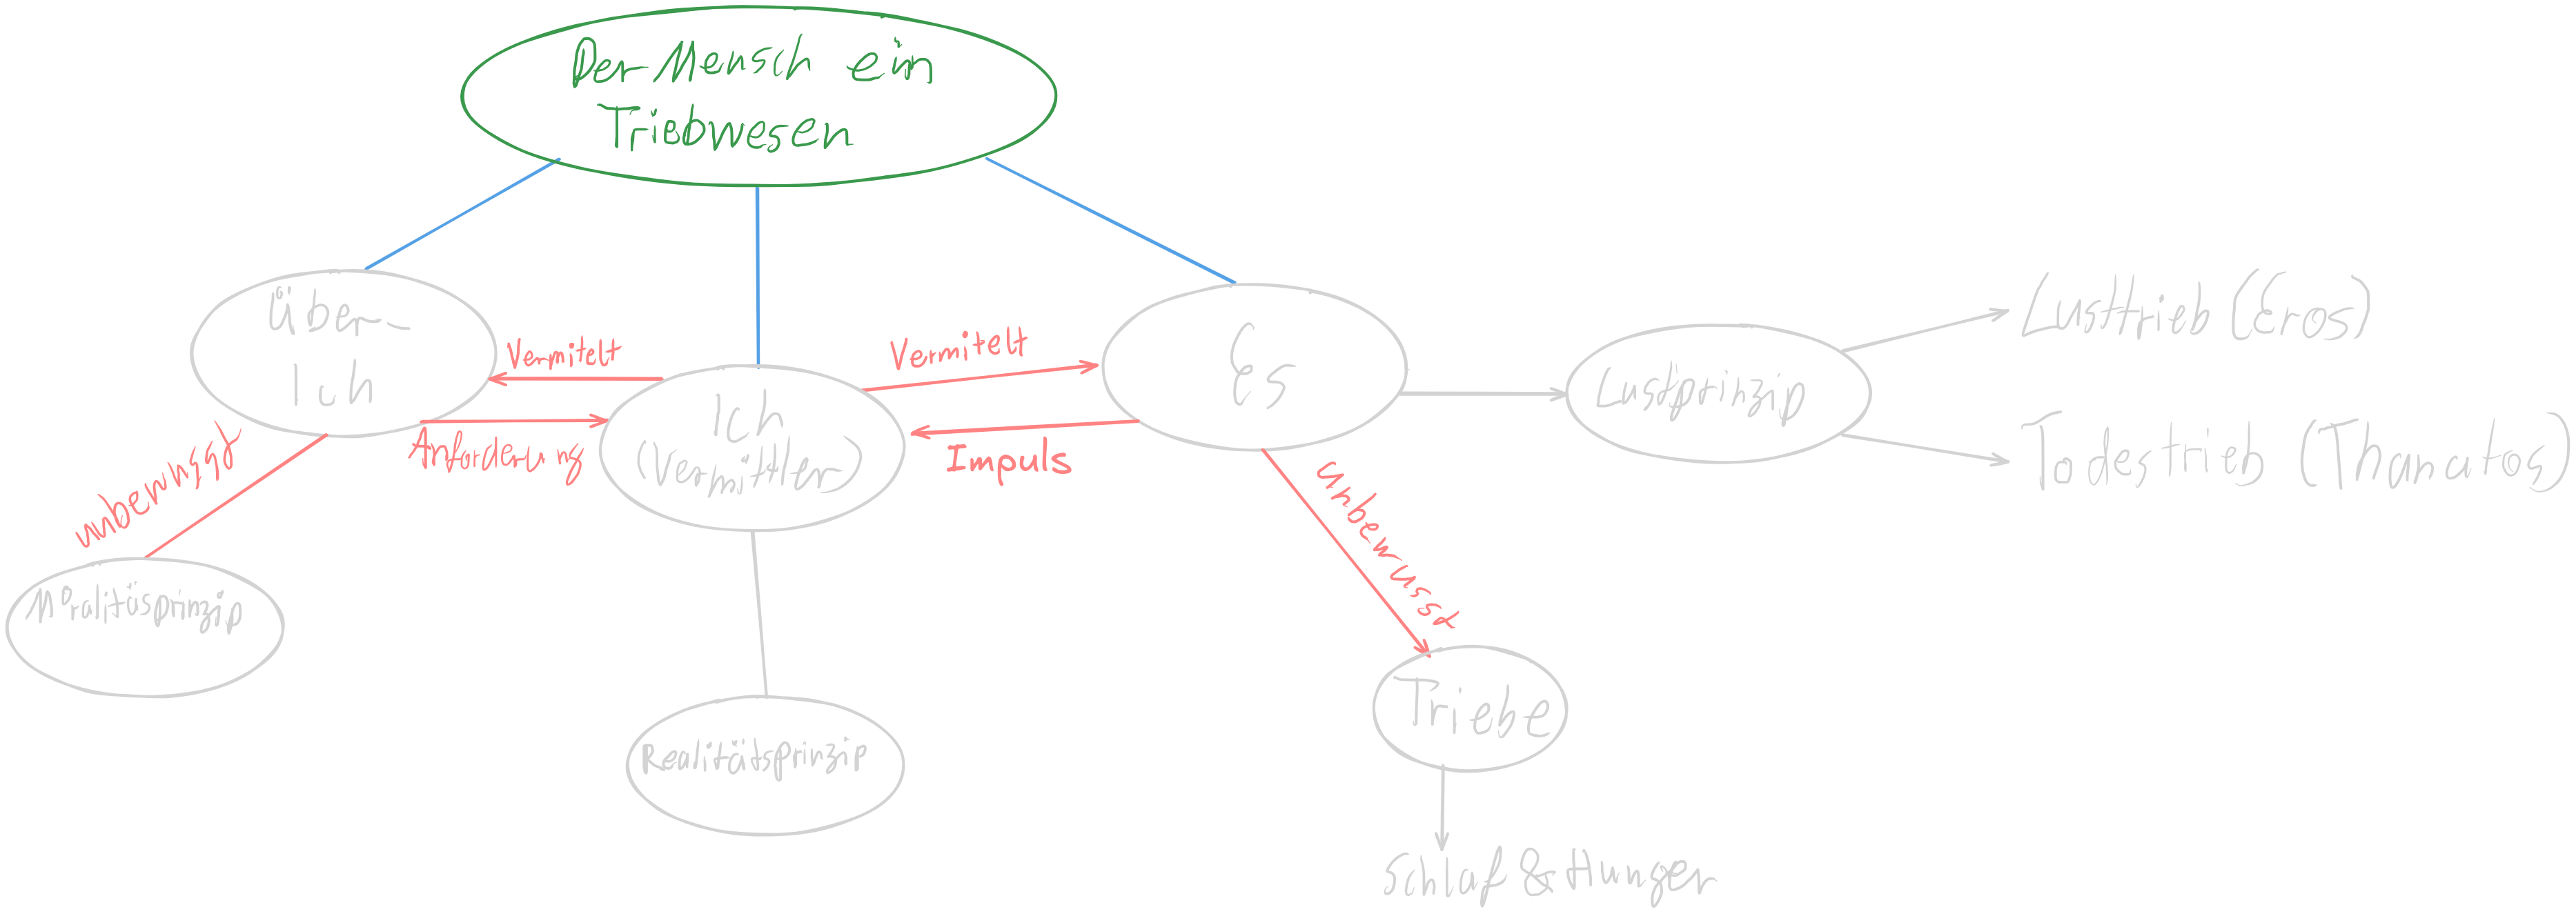 Der Mensch ein
Triebwesen
Über-
Ich
Vermitelt
Anforderung
Ich
(Vermittler)
Vermitelt
Impuls
Es
Lustprinzip
Lusttrieb (Eros)
Todestrieb (Thanatos)
unbewusst
Moralitäsprinzip
Realitätsprinzip
unbewusst
Triebe
Schlaf & Hunger